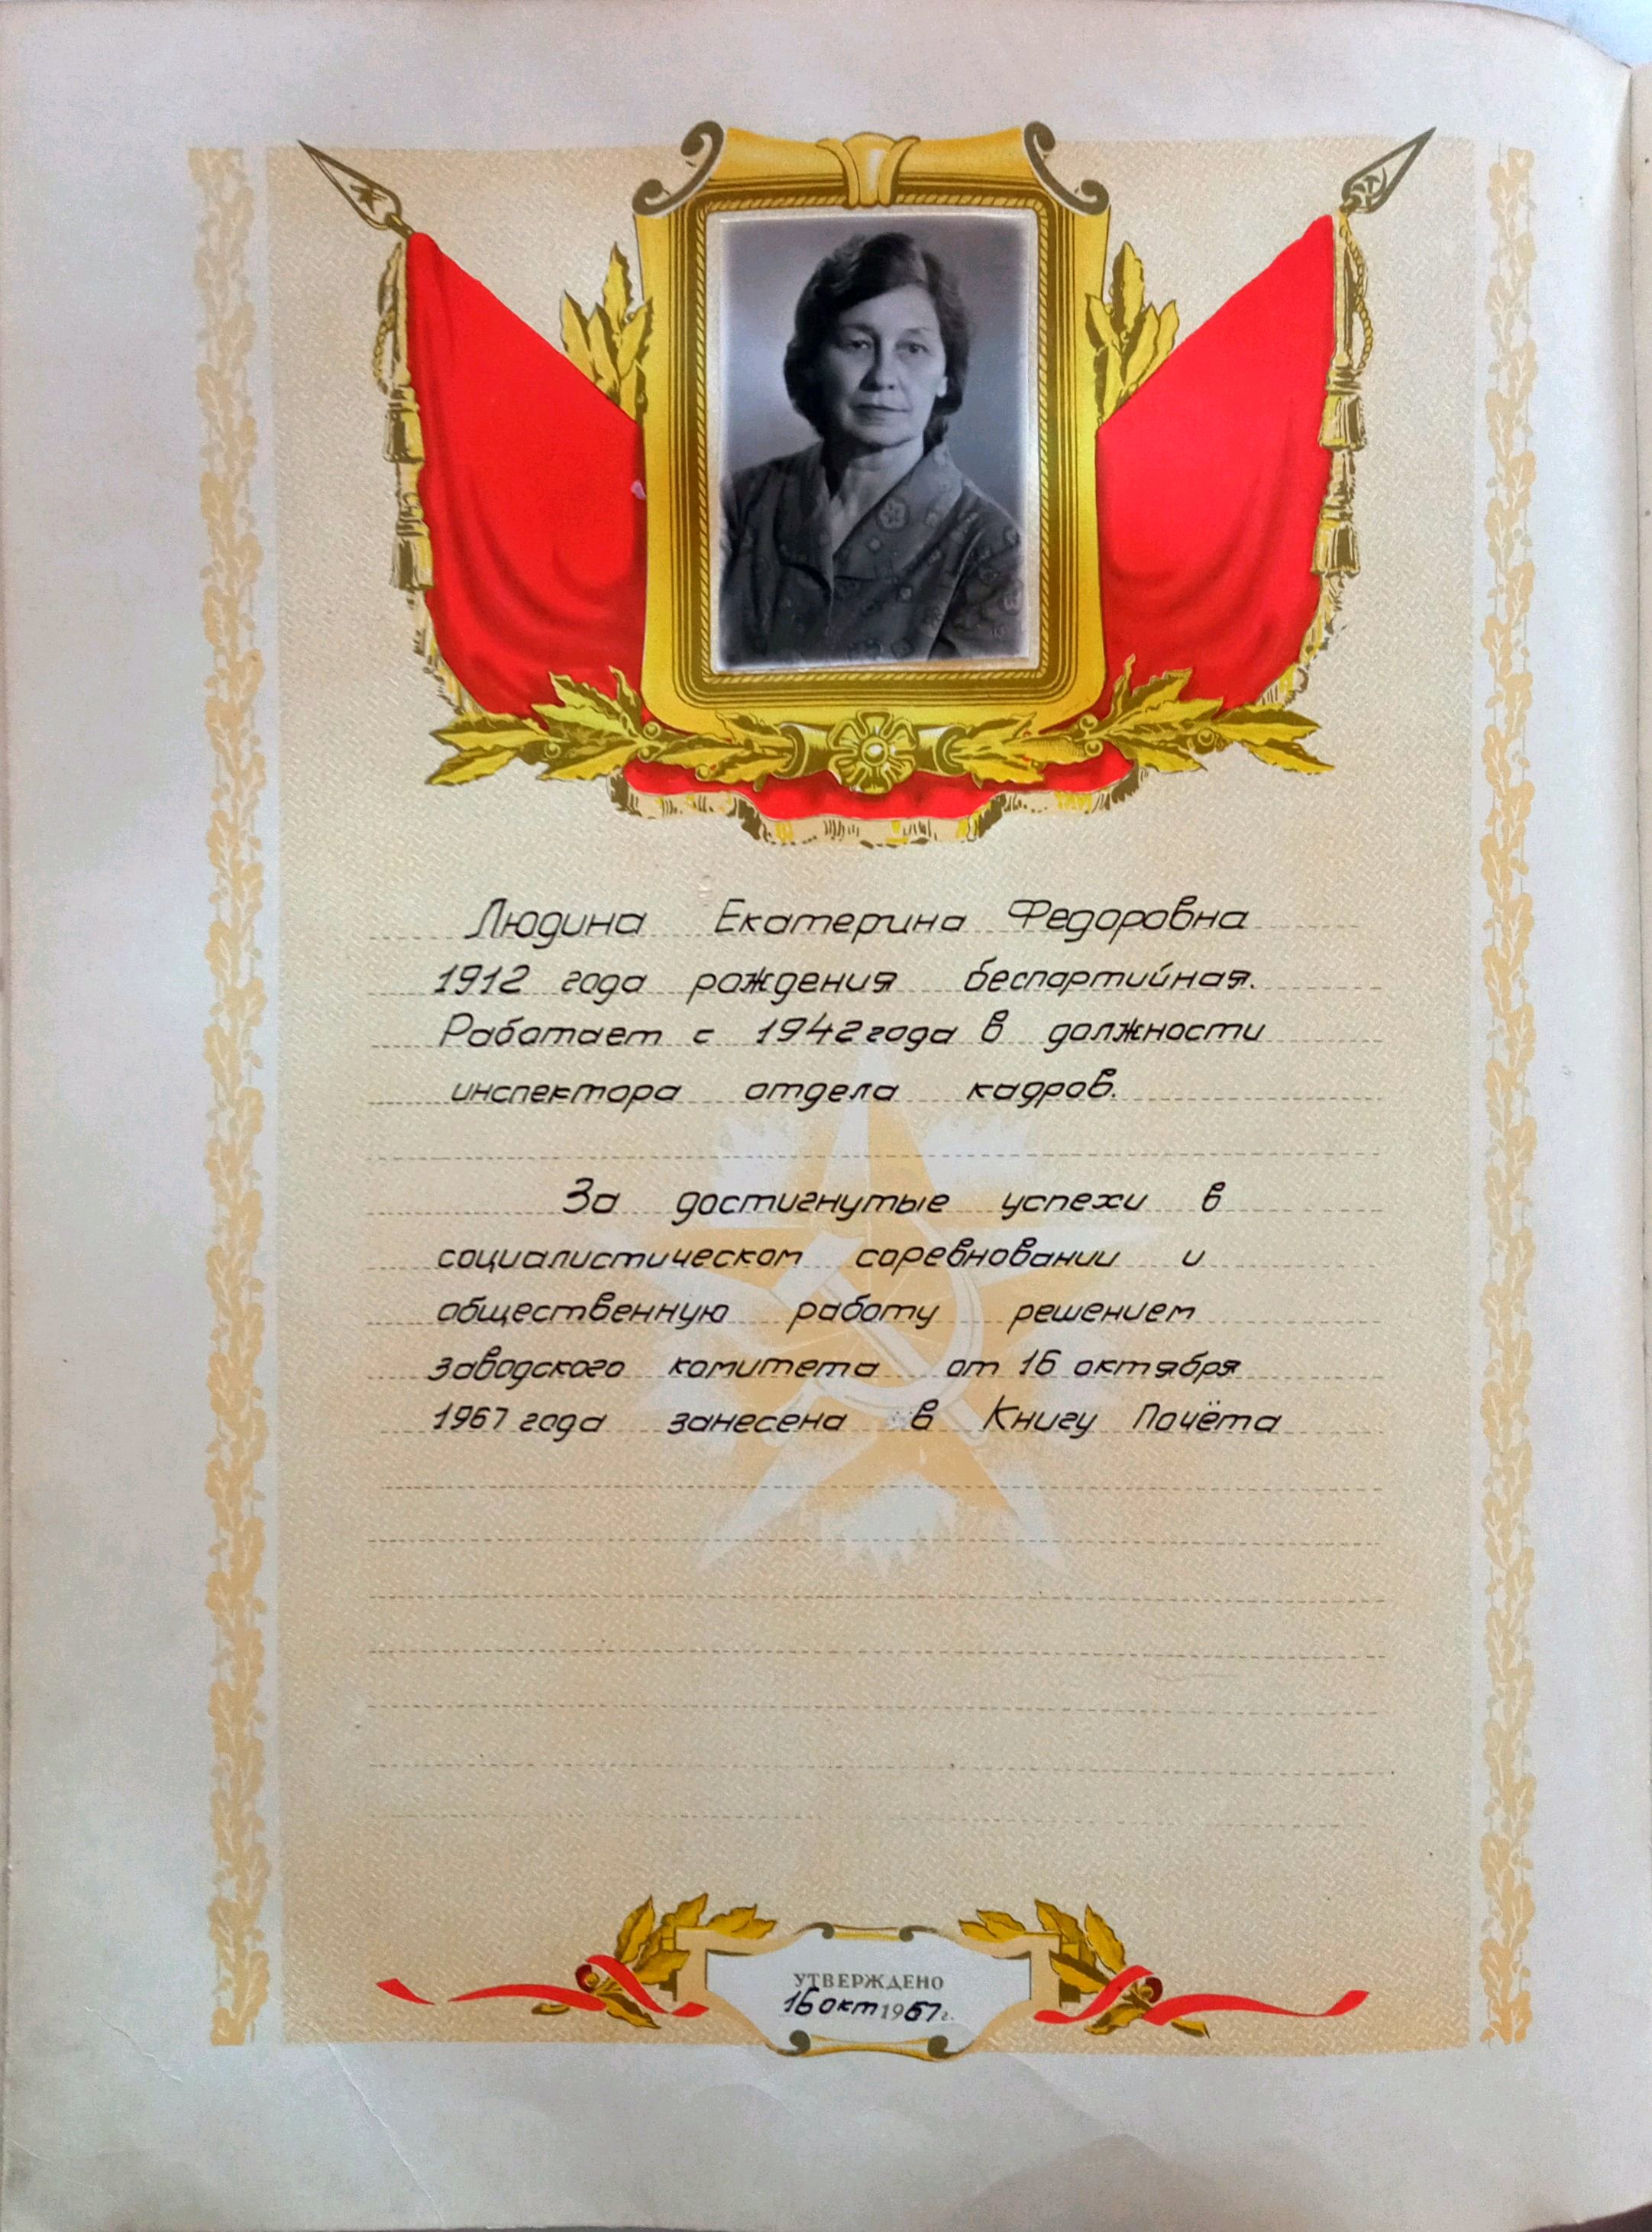 Людина Екатерина Федоровна
1912 года рождения беспартийная.
Работает с 1942 года в должности
инспектора отдела кадров.
За достигнутые успехи в
социалистическом соревновании и
общественную работу решением
заводского комитета от 16 октября
1967 года занесена в Книгу Почёта
УТВЕРЖДЕНО
16 окт 1967 г.